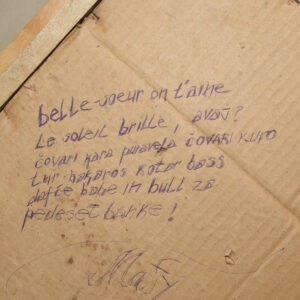 belle-soeur on t'aime
Le soleil brille, avaj?
čovari kara paravela čovari kuro
tur bakaros kotor bass
dafte babe in bull za
pedeset banke!